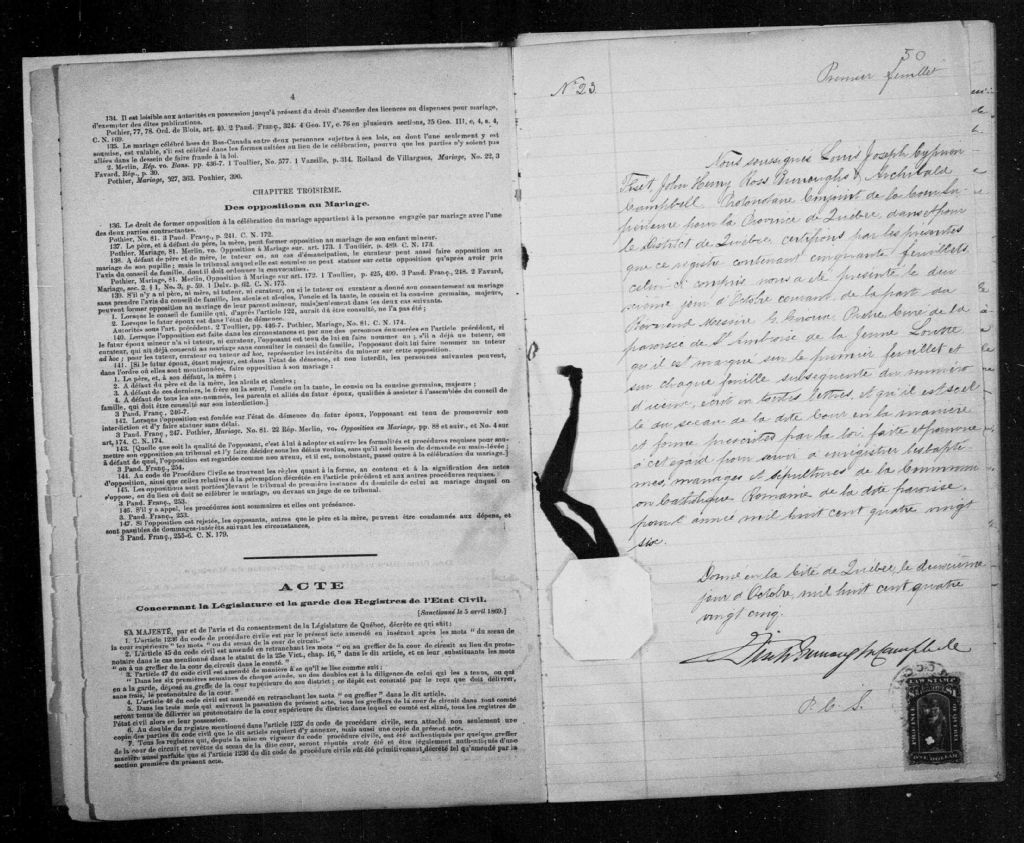 4
134. Il est loisible aux autorités en possession jusqu'à présent du droit d'accorder des licences ou dispenses pour mariage,
d'exempter des dites publications.
Pothier, 77, 78. Ord. de Blois, art. 40. 2 Pand. Franç., 324. 4 Geo. IV, c. 76 en plusieurs sections, 35 Geo. III, c. 4, s. 4,
C. N. 169.
135. Le mariage célébré hors du Bas-Canada entre deux personnes sujettes à ses lois, ou dont l'une seulement y est
soumise, est valable, s'il est célébré dans les formes usitées au lieu de la célébration, pourvu que les parties n'y soient pas
allées dans le dessein de faire fraude à la loi.
2 Merlin, Rép. vo. Bans. pp. 436-7. 1 Toullier, No. 577. 1 Vazeille, p. 314. Rolland de Villargues, Mariage, No. 22, 3
Favard, Rép., p. 39.
Pothier, Mariage, 327, 363. Pothier, 390.
CHAPITRE TROISIÈME.
Des oppositions au Mariage.
136. Le droit de former opposition à la célébration du mariage appartient à la personne engagée par mariage avec l'une
des deux parties contractantes.
Pothier, No. 81. 3 Pand. Franç., p. 241. C. N. 172.
137. Le père, et à défaut du père, la mère, peut former opposition au mariage de son enfant mineur.
Pothier, Mariage, 81. Merlin, vo. Opposition à Mariage sur. art. 173. 1 Toullier, p. 489. C. N. 174.
138. A défaut de père et de mère, le tuteur ou, au cas d'émancipation, le curateur peut aussi faire opposition au
mariage de son pupille; mais le tribunal auquel elle est soumise ne peut statuer sur cette opposition qu'après avoir pris
l'avis du conseil de famille, dont il doit ordonner la convocation.
Pothier, Mariage, 81. Merlin, Opposition à Mariage sur art. 172. 1 Toullier, p. 425, 490. 3 Pand. Franç., 248. 2 Favard,
Mariage, sec. 2, § 1, No. 3, p. 59. 1 Delv. p. 62. C. N. 175.
139. S'il n'y a ni père, ni mère, ni tuteur, ni curateur, ou si le tuteur ou curateur a donné son consentement au mariage
sans prendre l'avis du conseil de famille, les aïeuls et aïeules, l'oncle et la tante, le cousin et la cousine germains, majeurs,
peuvent former opposition au mariage de leur parent mineur, mais seulement dans les deux cas suivants.
1. Lorsque le conseil de famille qui, d'après l'article 122, aurait dû être consulté, ne l'a pas été;
2. Lorsque le futur époux est dans l'état de démence.
Autorités sous l'art. précédent. 2 Toullier, pp. 446-7. Pothier, Mariage, No. 81. C. N. 174.
140. Lorsque l'opposition est faite dans les circonstances et par une des personnes énumérées en l'article précédent, si
le futur époux mineur n'a ni tuteur, ni curateur, l'opposant est tenu de lui en faire nommer un; s'il a déjà un tuteur, ou
curateur, qui ait déjà consenti au mariage sans consulter le conseil de famille, l'opposant doit lui faire nommer un tuteur
ad hoc; pour les tuteur, curateur ou tuteur ad hoc, représenter les intérêts du mineur sur cette opposition.
141. [Si le futur époux, étant majeur, est dans l'état de démence, et non interdit, les personnes suivantes peuvent,
dans l'ordre où elles sont mentionnées, faire opposition à son mariage:
1. Le père, et, à son défaut, la mère;
2. A défaut du père et de la mère, les aïeuls et aïeules;
3. A défaut de ces derniers, le frère ou la sœur, l'oncle ou la tante, le cousin ou la cousine germains, majeurs;
4. A défaut de tous les sus-nommés, les parents et alliés du futur époux, qualifiés à assister à l'assemblée du conseil de
famille, qui doit être consulté sur son interdiction.]
3 Pand. Franç., 246-7.
142. Lorsque l'opposition est fondée sur l'état de démence du futur époux, l'opposant est tenu de promouvoir son
interdiction et d'y faire statuer sans délai.
3 Pand. Franç., 247. Pothier, Mariage, No. 81. 22 Rép. Merlin, vo. Opposition au Mariage, pp. 88 et suiv., et No. 4 sur
art, 174. C. N. 174.
143. [Quelle que soit la qualité de l'opposant, c'est à lui à adopter et suivre les formalités et procédures requises pour sou-
mettre son opposition au tribunal et l'y faire décider sous les délais voulus, sans qu'il soit besoin de demande en main-levée;
à défaut de quoi, l'opposition est regardée comme non avenu, et il est, nonobstant, passé outre à la célébration du mariage.]
3 Pand. Franç., 254.
144. Au code de Procédure Civile se trouvent les règles quant à la forme, au contenu et à la signification des actes
d'opposition, ainsi que celles relatives à la péremption décrétée en l'article précédent et aux autres procédures requises.
145. Les oppositions sont portées devant le tribunal de première instance du domicile de celui au mariage duquel on
s'oppose, ou du lieu où doit se célébrer le mariage, ou devant un juge de ce tribunal.
3 Pand. Franç., 253.
146. S'il y a appel, les procédures sont sommaires et elles ont préséance.
3. Pand. Franç., 253.
147. Si l'opposition est rejetée, les opposants, autres que le père et la mère, peuvent être condamnés aux dépens, et
sont passibles de dommages-intérêts suivant les circonstances,
3 Pand. Franç., 255-6. C. N. 179.
ACTE
Concernant la Législature et la garde des Registres de l'Etat Civil.
[Sanctionné le 5 avril 1869.]
SA MAJESTÉ, par et de l'avis et du consentement de la Législature de Québec, décrète ce qui suit:
1. L'article 1236 du code de procédure civile est par le présent acte amendé en insérant après les mots "du sceau de
la cour supérieure" les mots "ou du sceau de la cour de circuit."
2. L'article 45 du code civil est amendé en retranchant les mots "ou au greffier de la cour de circuit au lieu du proto-
notaire dans le cas mentionné dans le statut de la 25e Vict., chap. 16," dans le dit article, et en leur substituants les mots
"ou à un greffier de la cour de circuit dans le comté."
3. L'article 47 du code civil est amendé de manière à ce qu'il se lise comme suit:
"Dans les six premières semaines de chaque année, un des doubles est à la diligence de celui qui les a tenus, ou qui
en a la garde, déposé au greffe de la cour supérieure de son district; ce dépôt est constaté par le reçu que doit délivrer,
sans frais, le protonotaire de la cour."
4. L'article 48 du code civil est amendé en retranchant les mots "ou greffier" dans le dit article.
5. Dans les trois mois qui suivront la passation du présent acte, tous les greffiers de la cour de circuit dans tout comté
seront tenus de délivrer au protonotaire de la cour supérieure du district dans lequel ce comté est situé, tous les registres de
l'état civil alors en leur possession.
6. Au double du registre mentionné dans l'article 1237 du code de procédure civile, sera attaché non seulement une
copie des parties du code civil que le dit article requiert d'y annexer, mais aussi une copie du présent acte.
7. Tous les registres qui, depuis la mise en vigueur du code civile, ont été authentiqués par quelque greffier
de la cour de circuit et revêtus du sceau de la dite cour, seront réputés avoir été et être légalement authentiqués d'une
manière aussi parfaite que si l'article 1236 du dit code de procédure civile eût été primitivement décrété tel qu'amendé par la
section première du présent acte.
50
Premier feuillet
No. 23.
Nous soussignés Louis Joseph Cyprien
Fiset, John Henry Ross Burroughs & Archibald
Campbell Protonotaire Conjoint de la Cour Su
périeure pour la Province de Québec dans et pour
le District de Québec, certifions par les présentes
que ce registre contenant cinquante feuillets
celui ci compris nous a été présenté le deu
xième jour d'Octobre courant de la part du
Révérend Messire Prêtre Curé de la
paroisse de St Ambroise de la Jeune Lorette
qu'il est marqué sur le premier feuillet et
sur chaque feuille subséquente du numéro
d'icelui, écrit en toutes lettres, et qu'il est scel
lé du sceau de la dite Cour en la manière
et forme prescrites par la loi, faite et pourvue
à cet égard pour servir à enregistrer les baptê
mes, mariages et sépultures de la Communi
on Catholique Romaine de la dite paroisse,
pour l'année mil huit cent quatre vingt
six.
Donné en la Cité de Québec, le deuxième
jour d'Octobre, mil huit cent quatre
vingt cinq.
Fiset Burroughs Campbell
P. C. S.
LAW STAMP
ONE DOLLAR